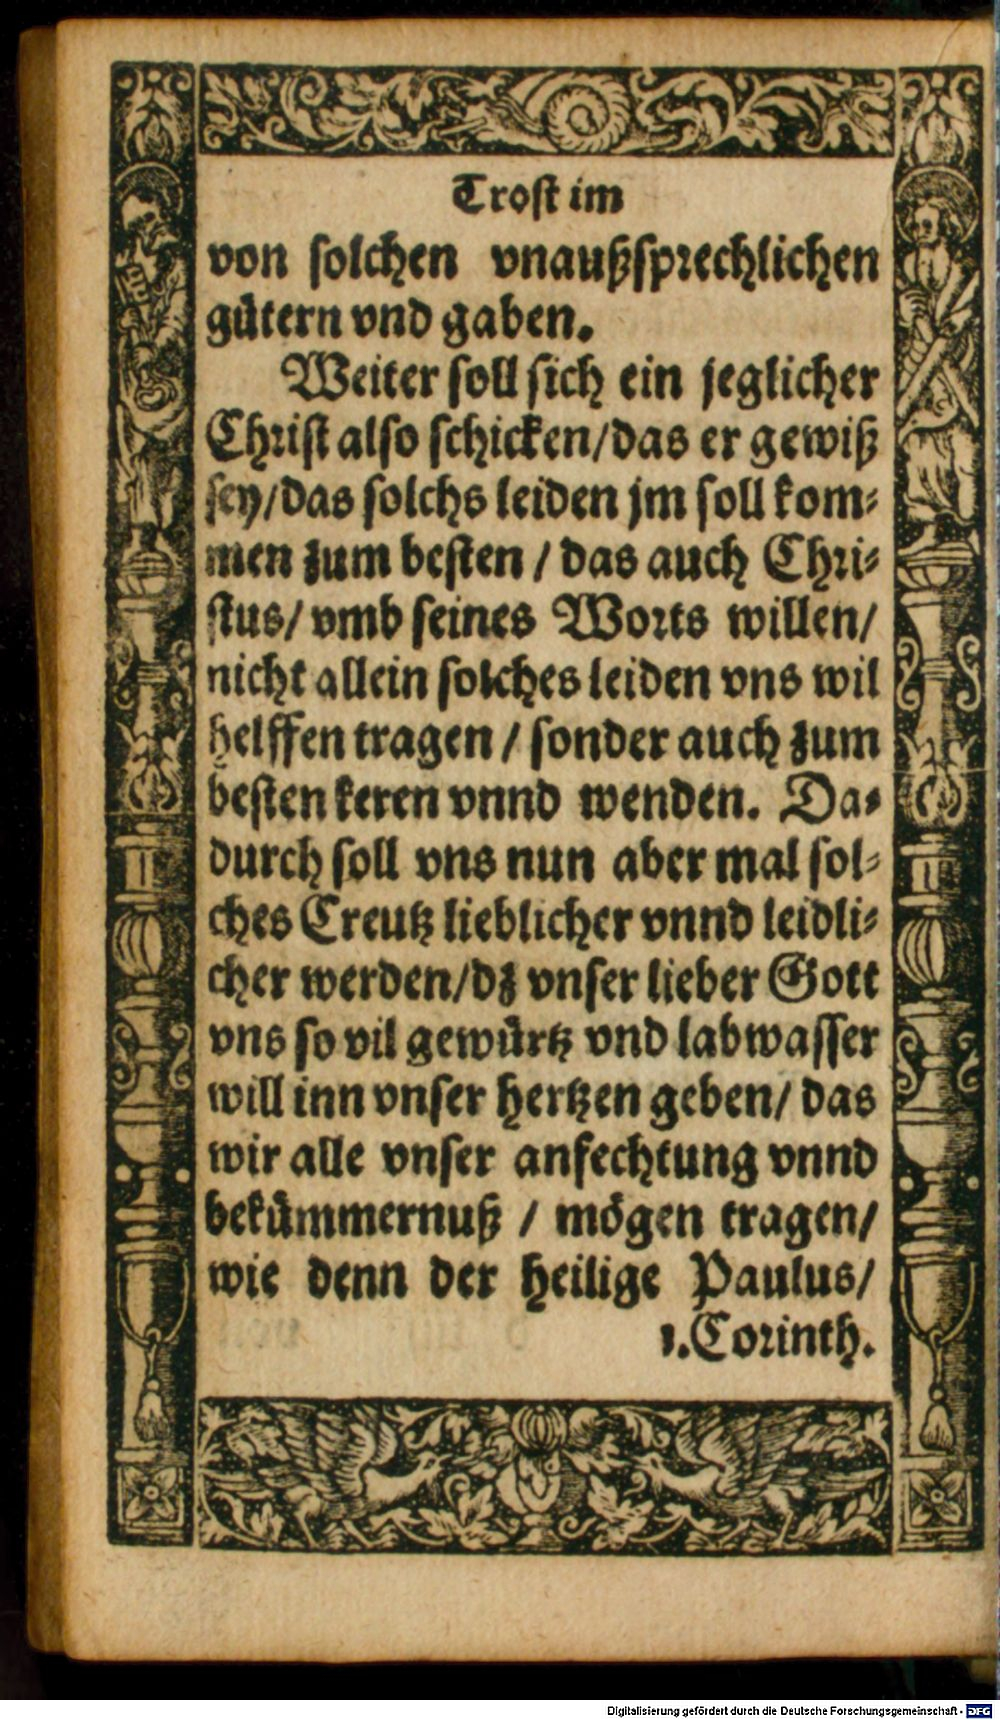 Trost im
von solchen vnaußsprechlichen
gůtern vnd gaben.
Weiter soll sich ein jeglicher
Christ also schicken/das er gewiß
sey/das solchs leiden jm soll kom⸗
men zum besten / das auch Chri⸗
stus/ vmb seines Worts willen/
nicht allein solches leiden vns wil
helffen tragen / sonder auch zum
besten keren vnnd wenden. Da⸗
durch soll vns nun aber mal sol⸗
ches Creutz lieblicher vnnd leidli⸗
cher werden/dz vnser lieber Gott
vns so vil gewürtz vnd labwasser
will inn vnser hertzen geben/ das
wir alle vnser anfechtung vnnd
bekümmernuß / mögen tragen/
wie denn der heilige Paulus/
1.Corinth.
Digitalisierung gefördert durch die Deutsche Forschungsgemeinschaft - DFG